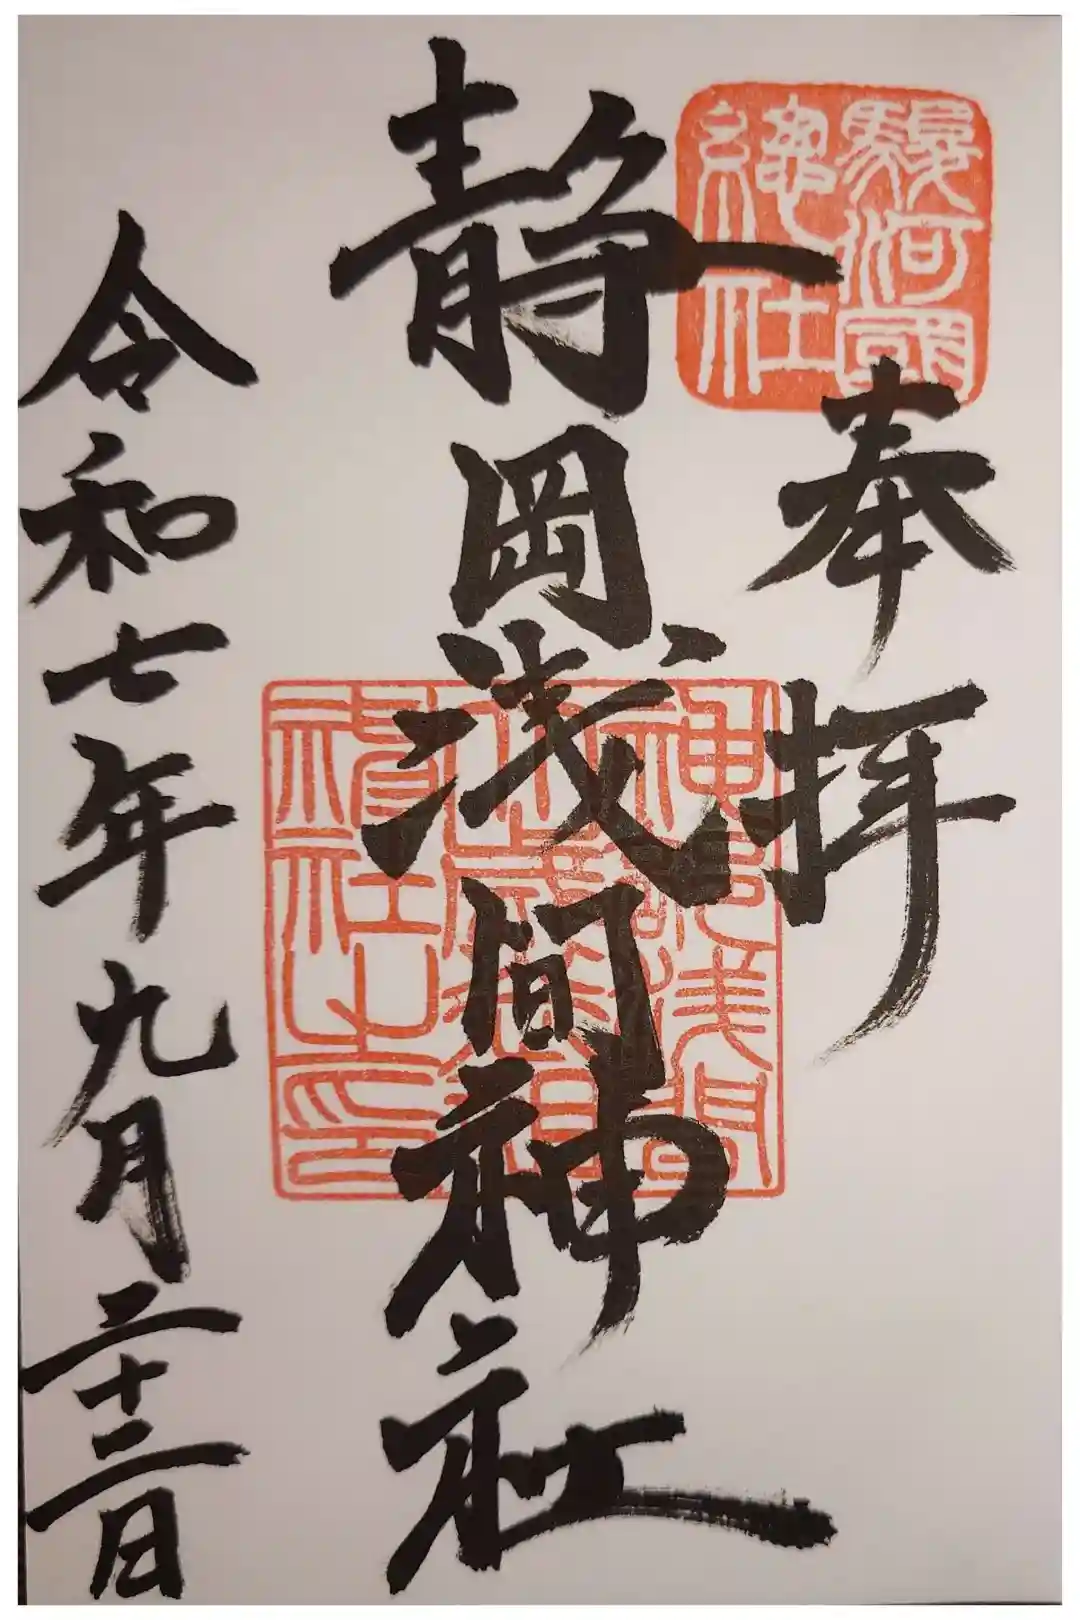 駿河國
總社
奉拝
静岡浅間神社
神部淺間
大歳御祖
神社之印
令和七年九月二十三日